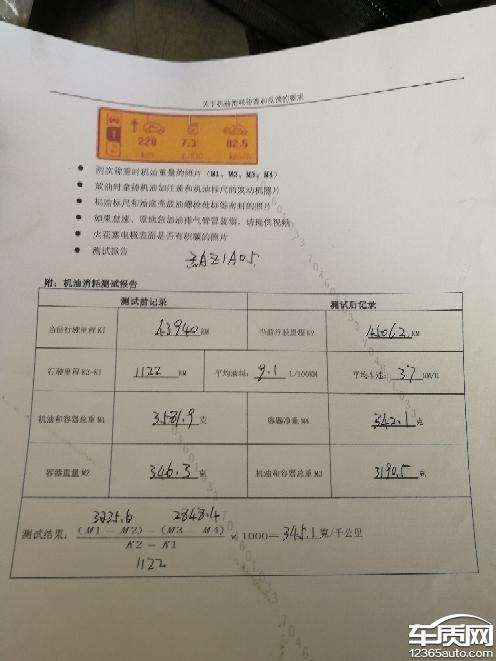 关于机油消耗检查和反馈的要求
1
228 7.3 82.5
km L/100 km/h
两次称重时机油重量的照片（M1、M2、M3、M4）
放油时拿掉机油加注盖和机油标尺的发动机照片
机油标尺和油底壳放油螺栓处标签密封的照片
如果怠速、原地急加油排气管冒蓝烟，请提供视频
火花塞电极表面是否有积碳的照片
测试报告
AZ1A05
附：机油消耗测试报告
测试前记录 测试后记录
当前行驶里程 K1 43940 KM 当前行驶里程 K2 45062 KM
行驶里程 K2-K1 1122 KM 平均油耗：9.1 L/100KM 平均车速：37 KM/H
机油和容器总重 M1 3581.9 克 容器净重 M4 342.1 克
容器重量 M2 346.3 克 机油和容器总重 M3 3190.5 克
3235.6 2848.4
测试结果：(M1 － M2) － (M3 － M4) / K2 － K1 × 1000＝345.1 克/千公里
1122
车质网
12365auto.com